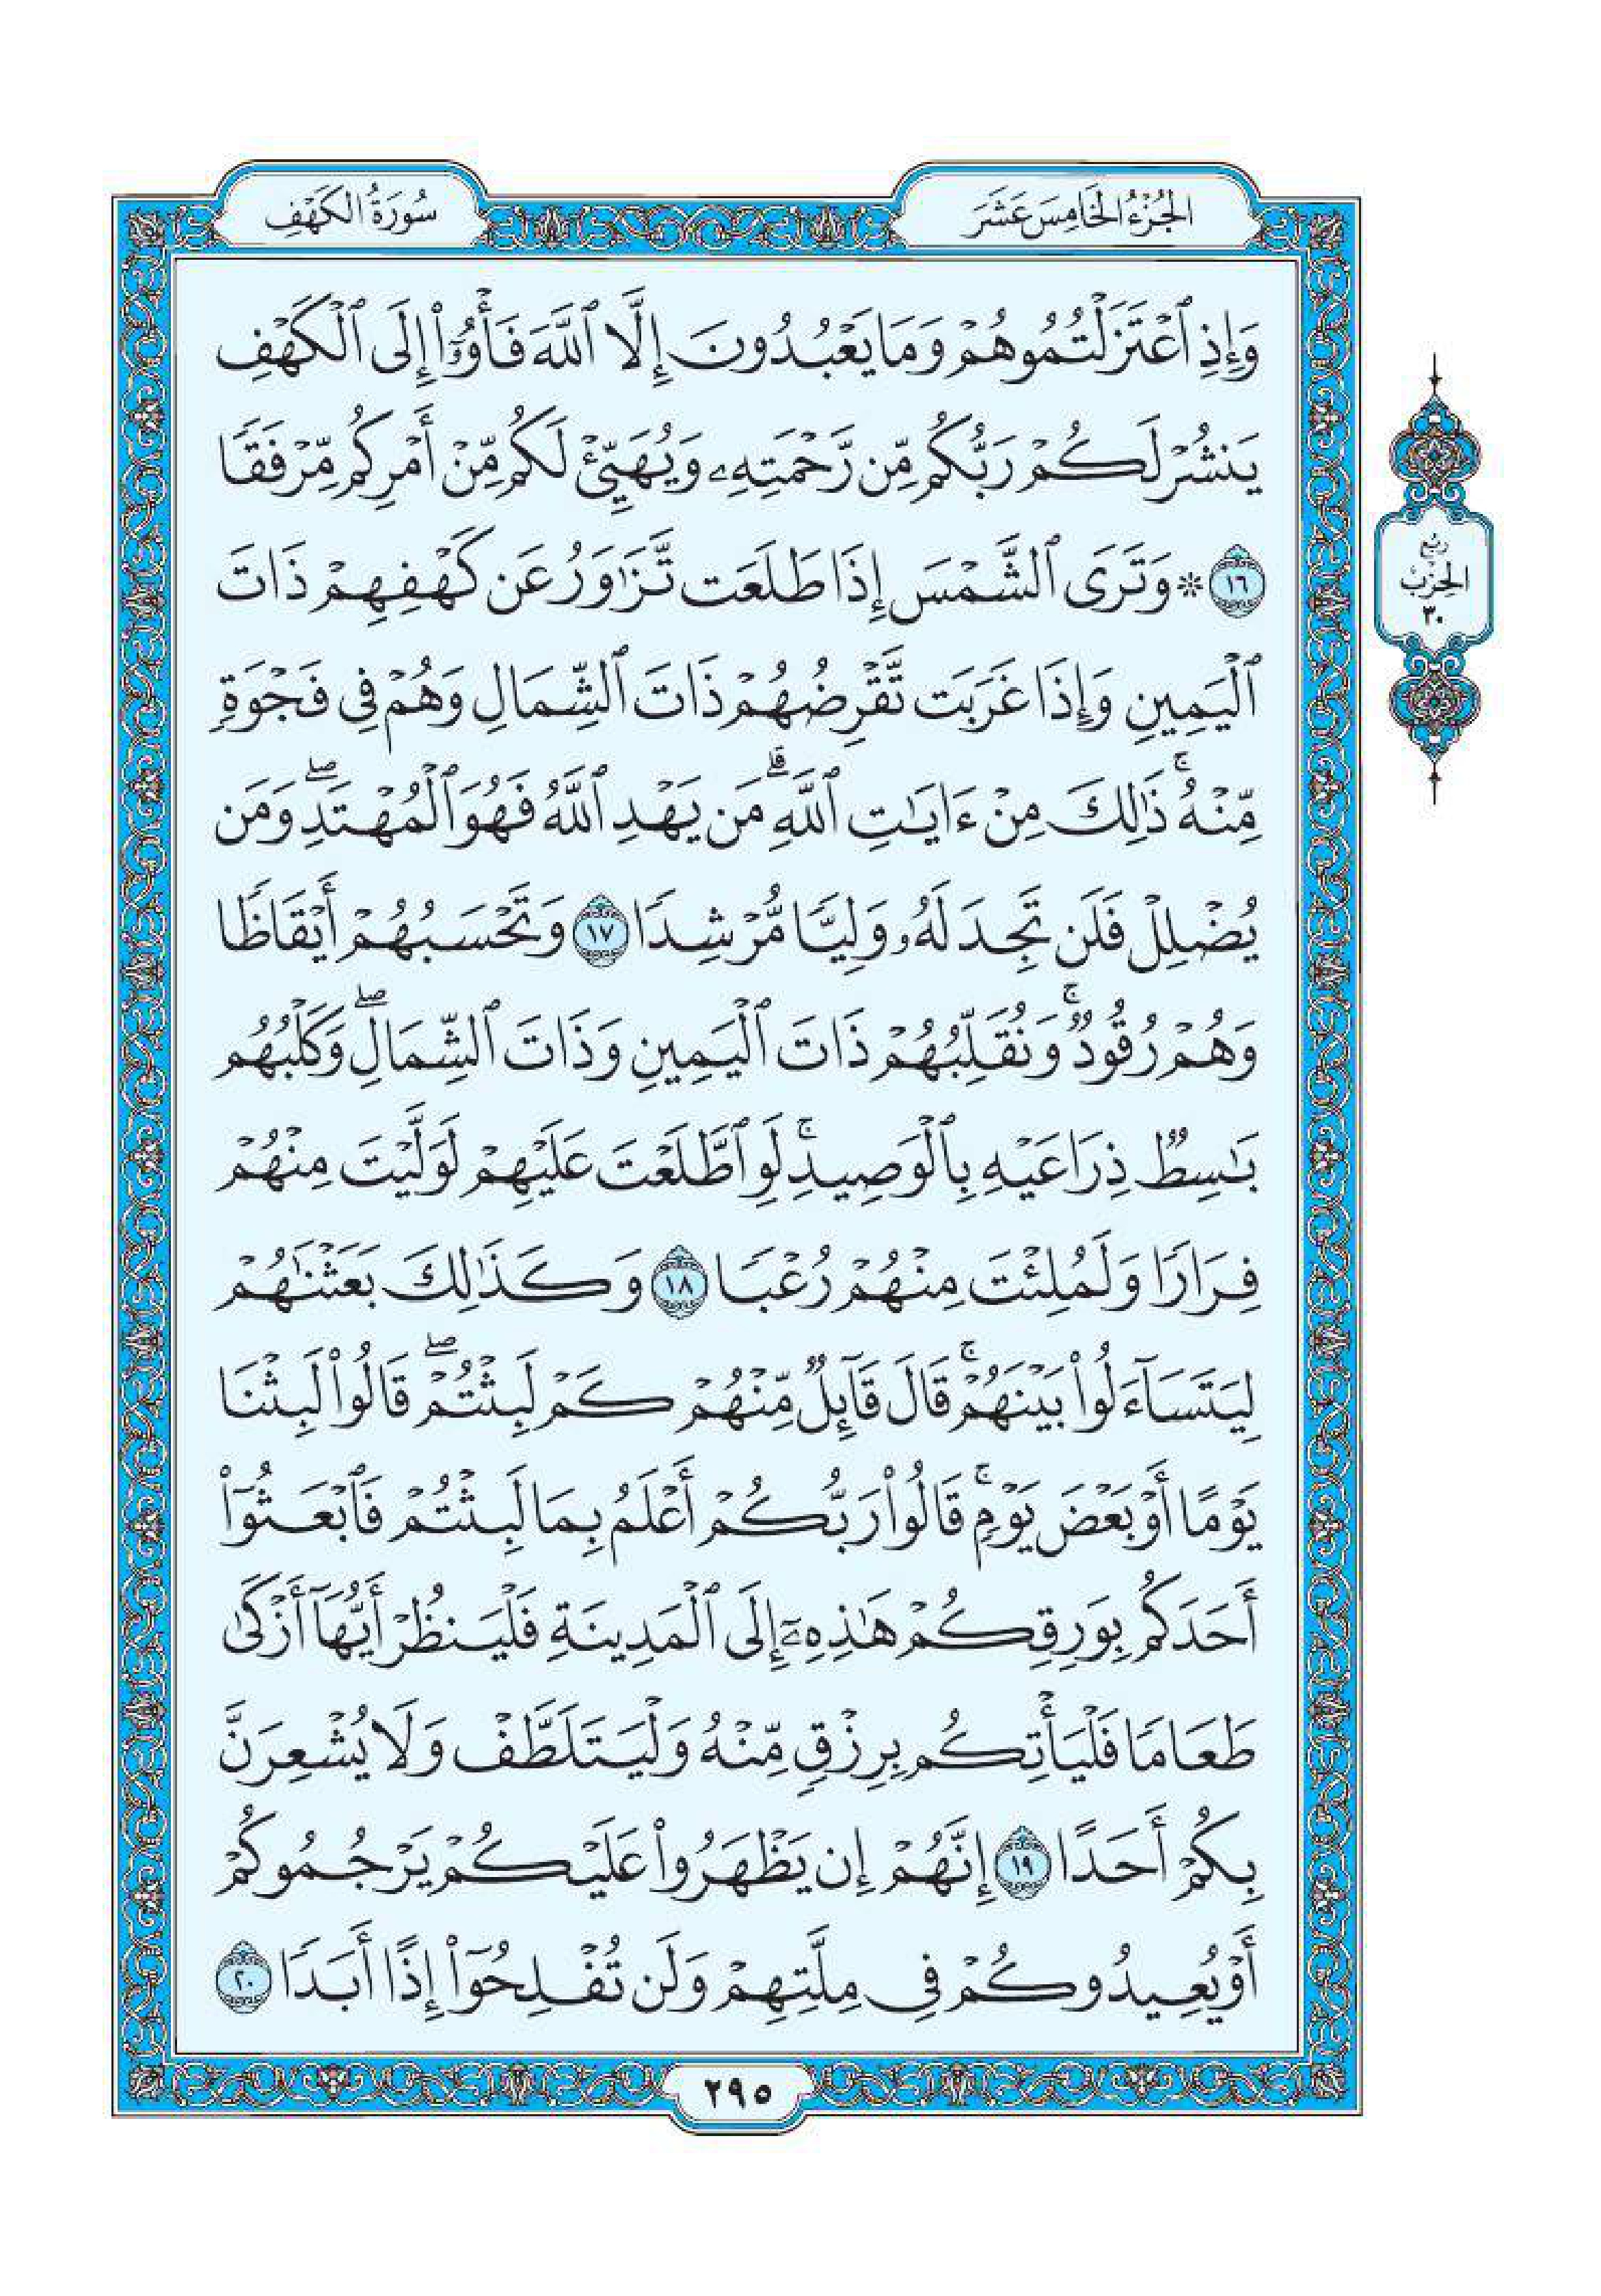 الجُزْءُ الخَامِسَ عَشَرَ
سُورَةُ الكَهْفِ
وَإِذِ ٱعۡتَزَلۡتُمُوهُمۡ وَمَا يَعۡبُدُونَ إِلَّا ٱللَّهَ فَأۡوُۥٓاْ إِلَى ٱلۡكَهۡفِ
يَنشُرۡ لَكُمۡ رَبُّكُم مِّن رَّحۡمَتِهِۦ وَيُهَيِّئۡ لَكُم مِّنۡ أَمۡرِكُم مِّرۡفَقٗا
١٦ ۞ وَتَرَى ٱلشَّمۡسَ إِذَا طَلَعَت تَّزَٰوَرُ عَن كَهۡفِهِمۡ ذَاتَ
ٱلۡيَمِينِ وَإِذَا غَرَبَت تَّقۡرِضُهُمۡ ذَاتَ ٱلشِّمَالِ وَهُمۡ فِي فَجۡوَةٖ
مِّنۡهُۚ ذَٰلِكَ مِنۡ ءَايَٰتِ ٱللَّهِۗ مَن يَهۡدِ ٱللَّهُ فَهُوَ ٱلۡمُهۡتَدِۖ وَمَن
يُضۡلِلۡ فَلَن تَجِدَ لَهُۥ وَلِيّٗا مُّرۡشِدٗا ١٧ وَتَحۡسَبُهُمۡ أَيۡقَاظٗا
وَهُمۡ رُقُودٞۚ وَنُقَلِّبُهُمۡ ذَاتَ ٱلۡيَمِينِ وَذَاتَ ٱلشِّمَالِۖ وَكَلۡبُهُم
بَٰسِطٞ ذِرَاعَيۡهِ بِٱلۡوَصِيدِۚ لَوِ ٱطَّلَعۡتَ عَلَيۡهِمۡ لَوَلَّيۡتَ مِنۡهُمۡ
فِرَارٗا وَلَمُلِئۡتَ مِنۡهُمۡ رُعۡبٗا ١٨ وَكَذَٰلِكَ بَعَثۡنَٰهُمۡ
لِيَتَسَآءَلُواْ بَيۡنَهُمۡۚ قَالَ قَآئِلٞ مِّنۡهُمۡ كَمۡ لَبِثۡتُمۡۖ قَالُواْ لَبِثۡنَا
يَوۡمًا أَوۡ بَعۡضَ يَوۡمٖۚ قَالُواْ رَبُّكُمۡ أَعۡلَمُ بِمَا لَبِثۡتُمۡ فَٱبۡعَثُوٓاْ
أَحَدَكُم بِوَرِقِكُمۡ هَٰذِهِۦٓ إِلَى ٱلۡمَدِينَةِ فَلۡيَنظُرۡ أَيُّهَآ أَزۡكَىٰ
طَعَامٗا فَلۡيَأۡتِكُم بِرِزۡقٖ مِّنۡهُ وَلۡيَتَلَطَّفۡ وَلَا يُشۡعِرَنَّ
بِكُمۡ أَحَدًا ١٩ إِنَّهُمۡ إِن يَظۡهَرُواْ عَلَيۡكُمۡ يَرۡجُمُوكُمۡ
أَوۡ يُعِيدُوكُمۡ فِي مِلَّتِهِمۡ وَلَن تُفۡلِحُوٓاْ إِذًا أَبَدٗا ٢٠
رُبْعُ
الحِزْبِ
٣٠
٢٩٥